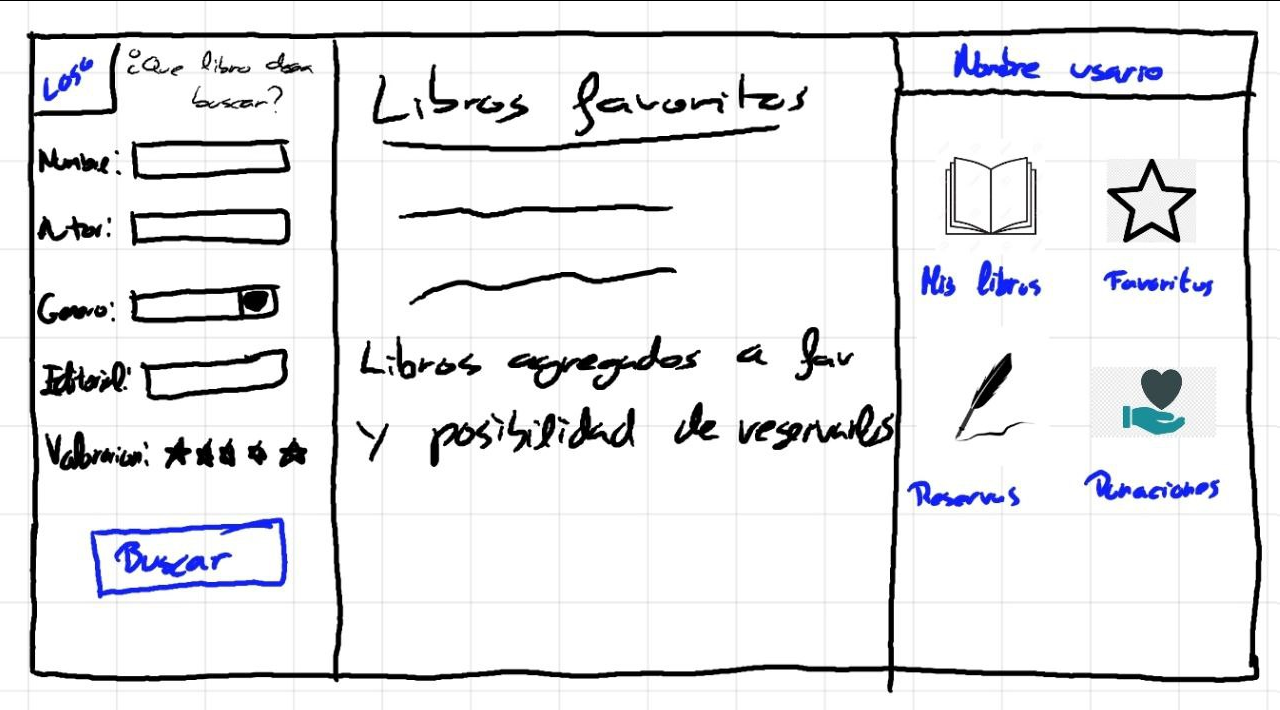 LOGO
¿Que libro desea
buscar?
Nombre:
Autor:
Genero:
Editorial:
Valoracion:
Buscar
Libros favoritos
Libros agregados a fav
y posibilidad de reservarlos
Nombre usuario
Mis libros
Favoritos
Reservas
Donaciones